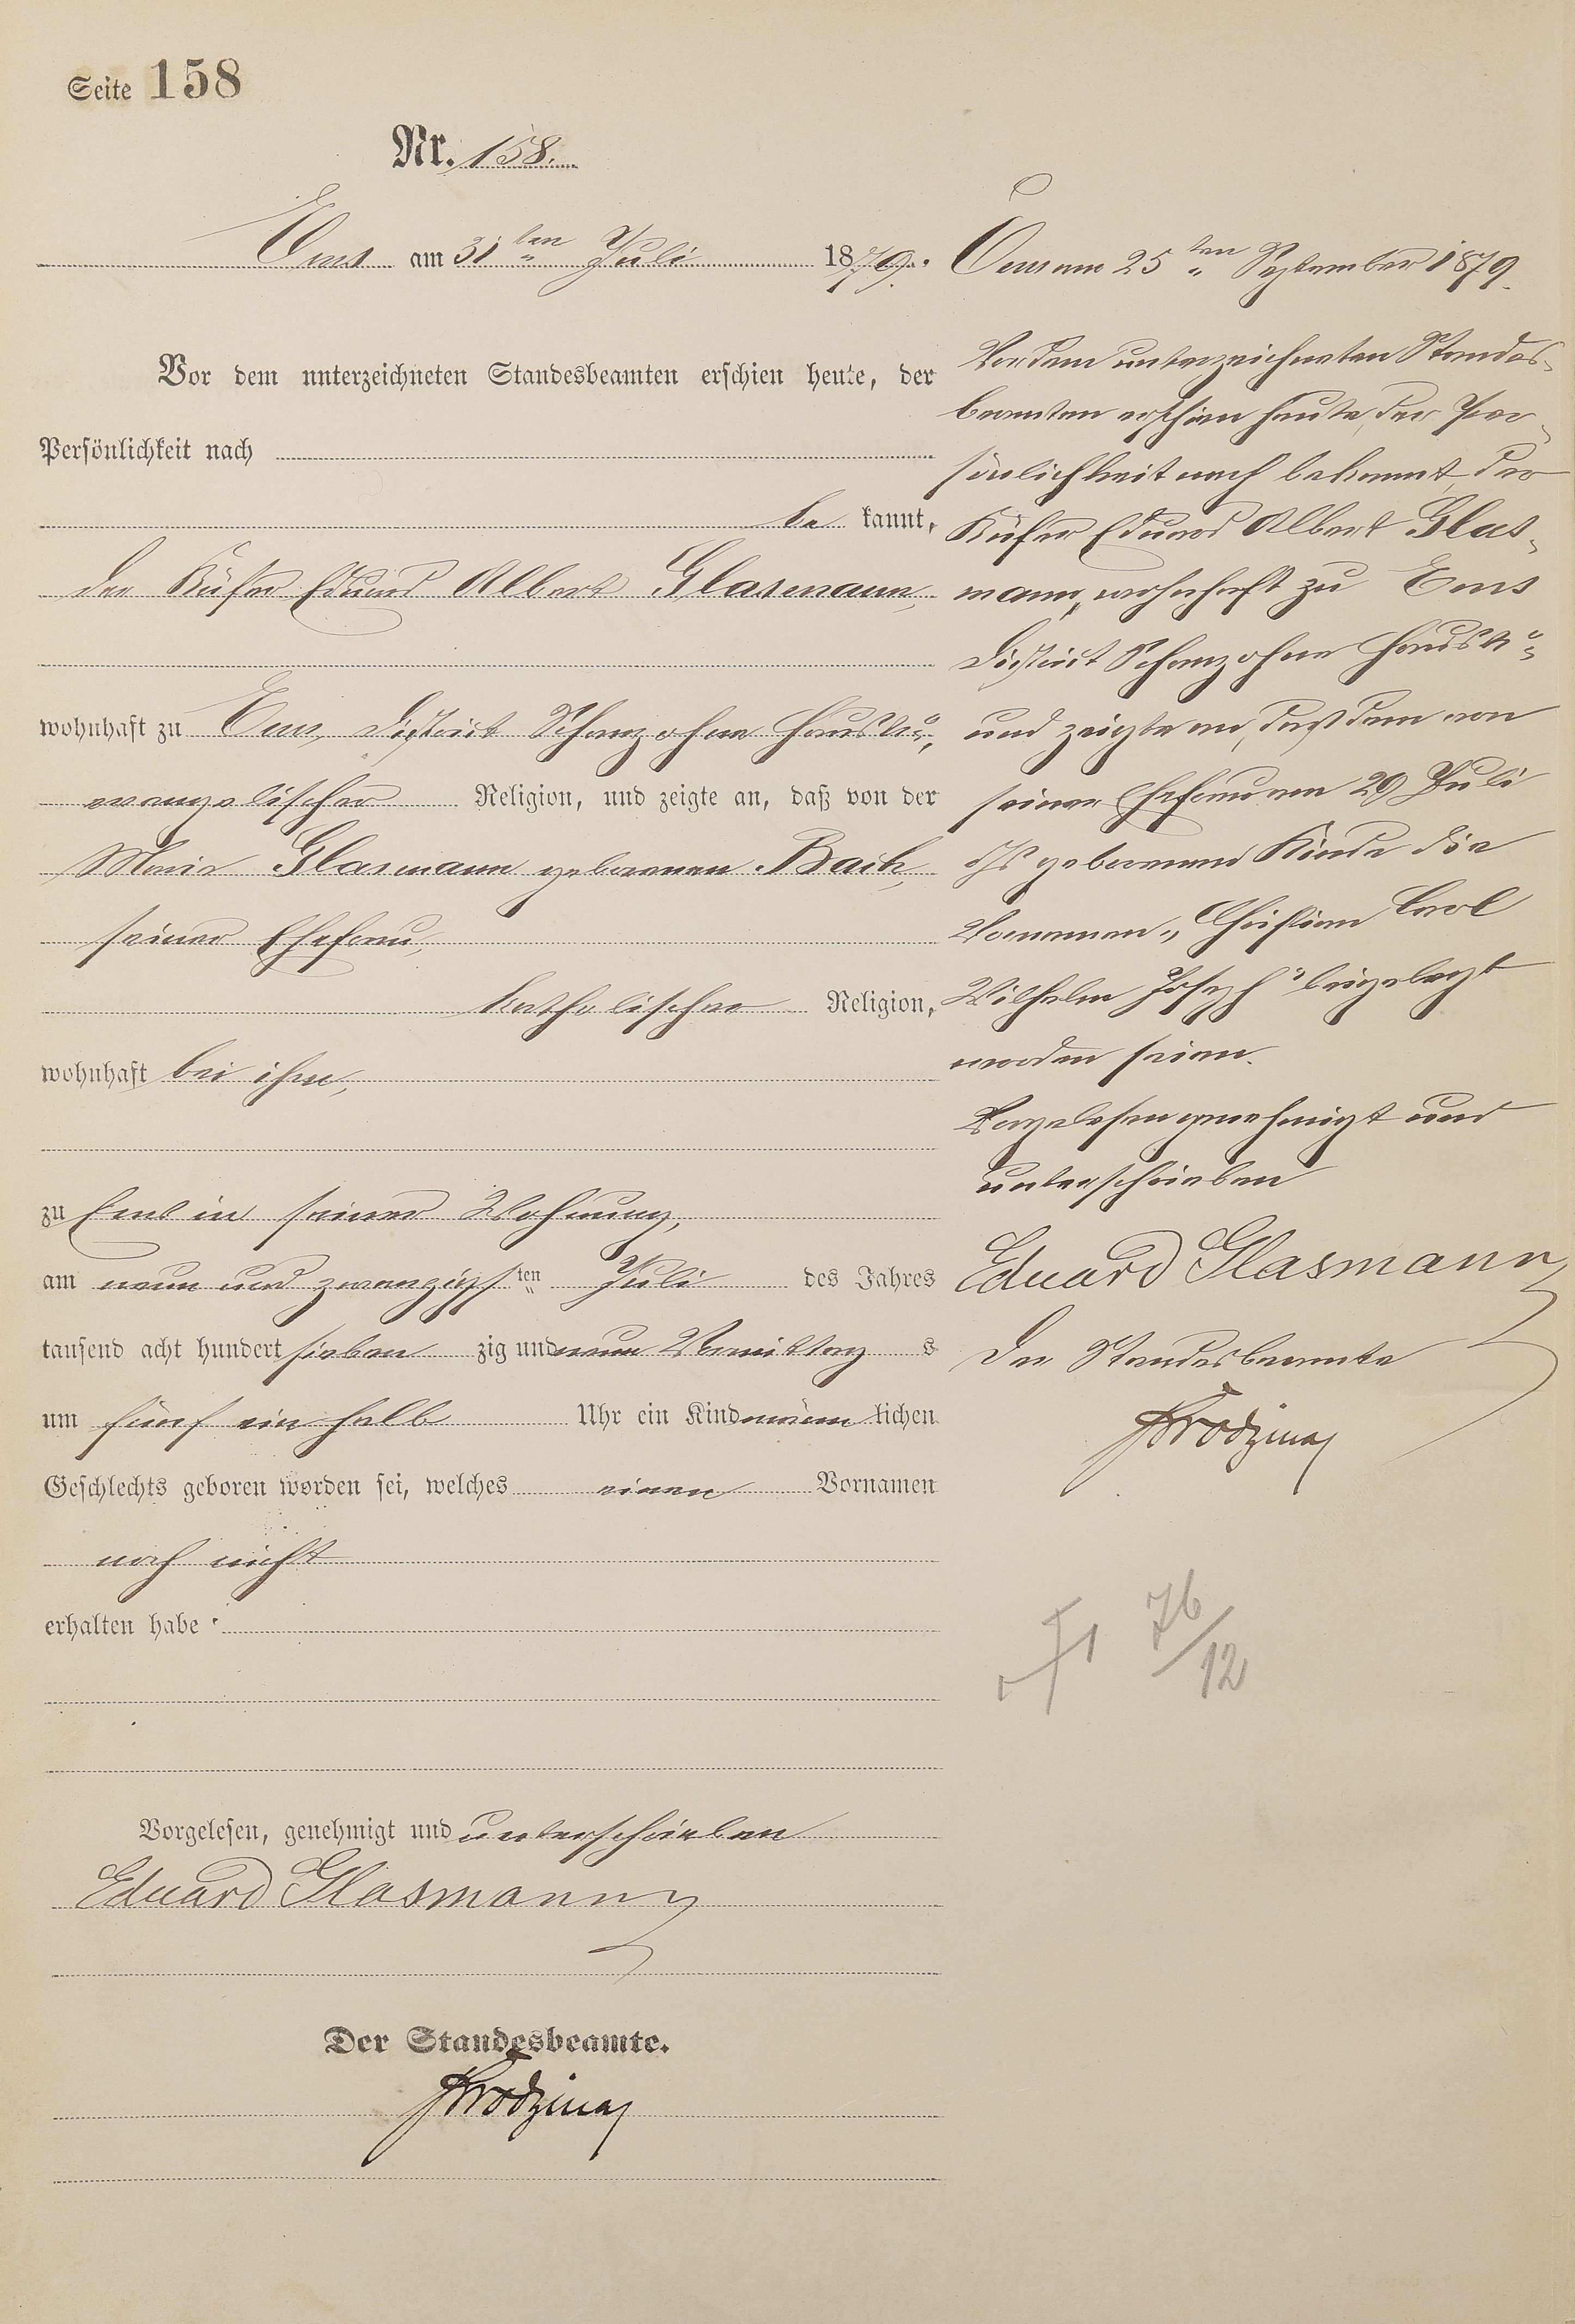 Seite 158
Nr. 158.
Ems am 31ten Juli 1879.
Vor dem unterzeichneten Standesbeamten erschien heute, der
Persönlichkeit nach
be kannt,
der Küfer Eduard Albert Glasmann,
wohnhaft zu Ems, District Schanz ohne Haus No,
evangelischer Religion, und zeigte an, daß von der
Maria Glasmann geborenen Bach,
seiner Ehefrau,
katholischer Religion,
wohnhaft bei ihm,
zu Ems in seiner Wohnung,
am neun und zwanzigsten Juli des Jahres
tausend acht hundert sieben zig und neun Vormittag s
um fünf ein halb Uhr ein Kind männ lichen
Geschlechts geboren worden sei, welches einen Vornamen
noch nicht
erhalten habe.
Vorgelesen, genehmigt und unterschrieben
Eduard Glasmann
Der Standesbeamte.
Ems am 25ten September 1879.
Vor dem unterzeichneten Standes-
beamten erschien heute, der Per-
sönlichkeit nach bekannt, der
Küfer Eduard Albert Glas-
mann, wohnhaft zu Ems
District Schanz ohne Haus No
und zeigte an, daß dem von
seiner Ehefrau am 29 Juli
ds Js geborenen Kinde die
Vornamen „Christian Carl
Wilhelm Joseph" beigelegt
worden seien.
Vorgelesen genehmigt und
unterschrieben
Eduard Glasmann
Der Standesbeamte
76/12